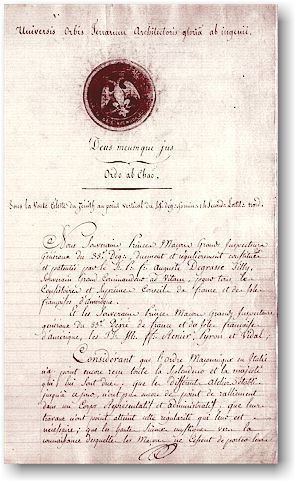 Universis Orbis Terrarum Architectoris gloria ab ingenii.
Deus meumque jus
Ordo ab Chao.
Sous la Voute Céleste du Zénith au point vertical du
Nous Souverains Princes Maçons Grands Inspecteurs
Généraux du 33e Deg. dument et régulièrement constitués
et patentés par le Auguste Degrasse Tilly,
Souverain Grand Commandeur à Vitam,
Consistoire et Supreme Conseil de France et des Isles
françoises d'amérique.
et les Souverains Princes Maçons Grands Inspecteurs
généraux du 33e Dégré de france et des Isles françaises
d'amérique, les Renier, Pyron et Vidal,
Considérant que l'Ordre Maçonnique en Italie
n'a point encore reçu toute la Splendeur et la majesté
qui lui sont dues, que les Différents Ateliers
jusqu'à ce jour, n'ont pas de point de ralliement
dans un Corps Représentatif et Administratif, que leurs
travaux n'ont point atteint cette régularité qui leur est
nécessaire, que les hauts
connaissance desquelles les Maçons ne Cessent de porter leurs